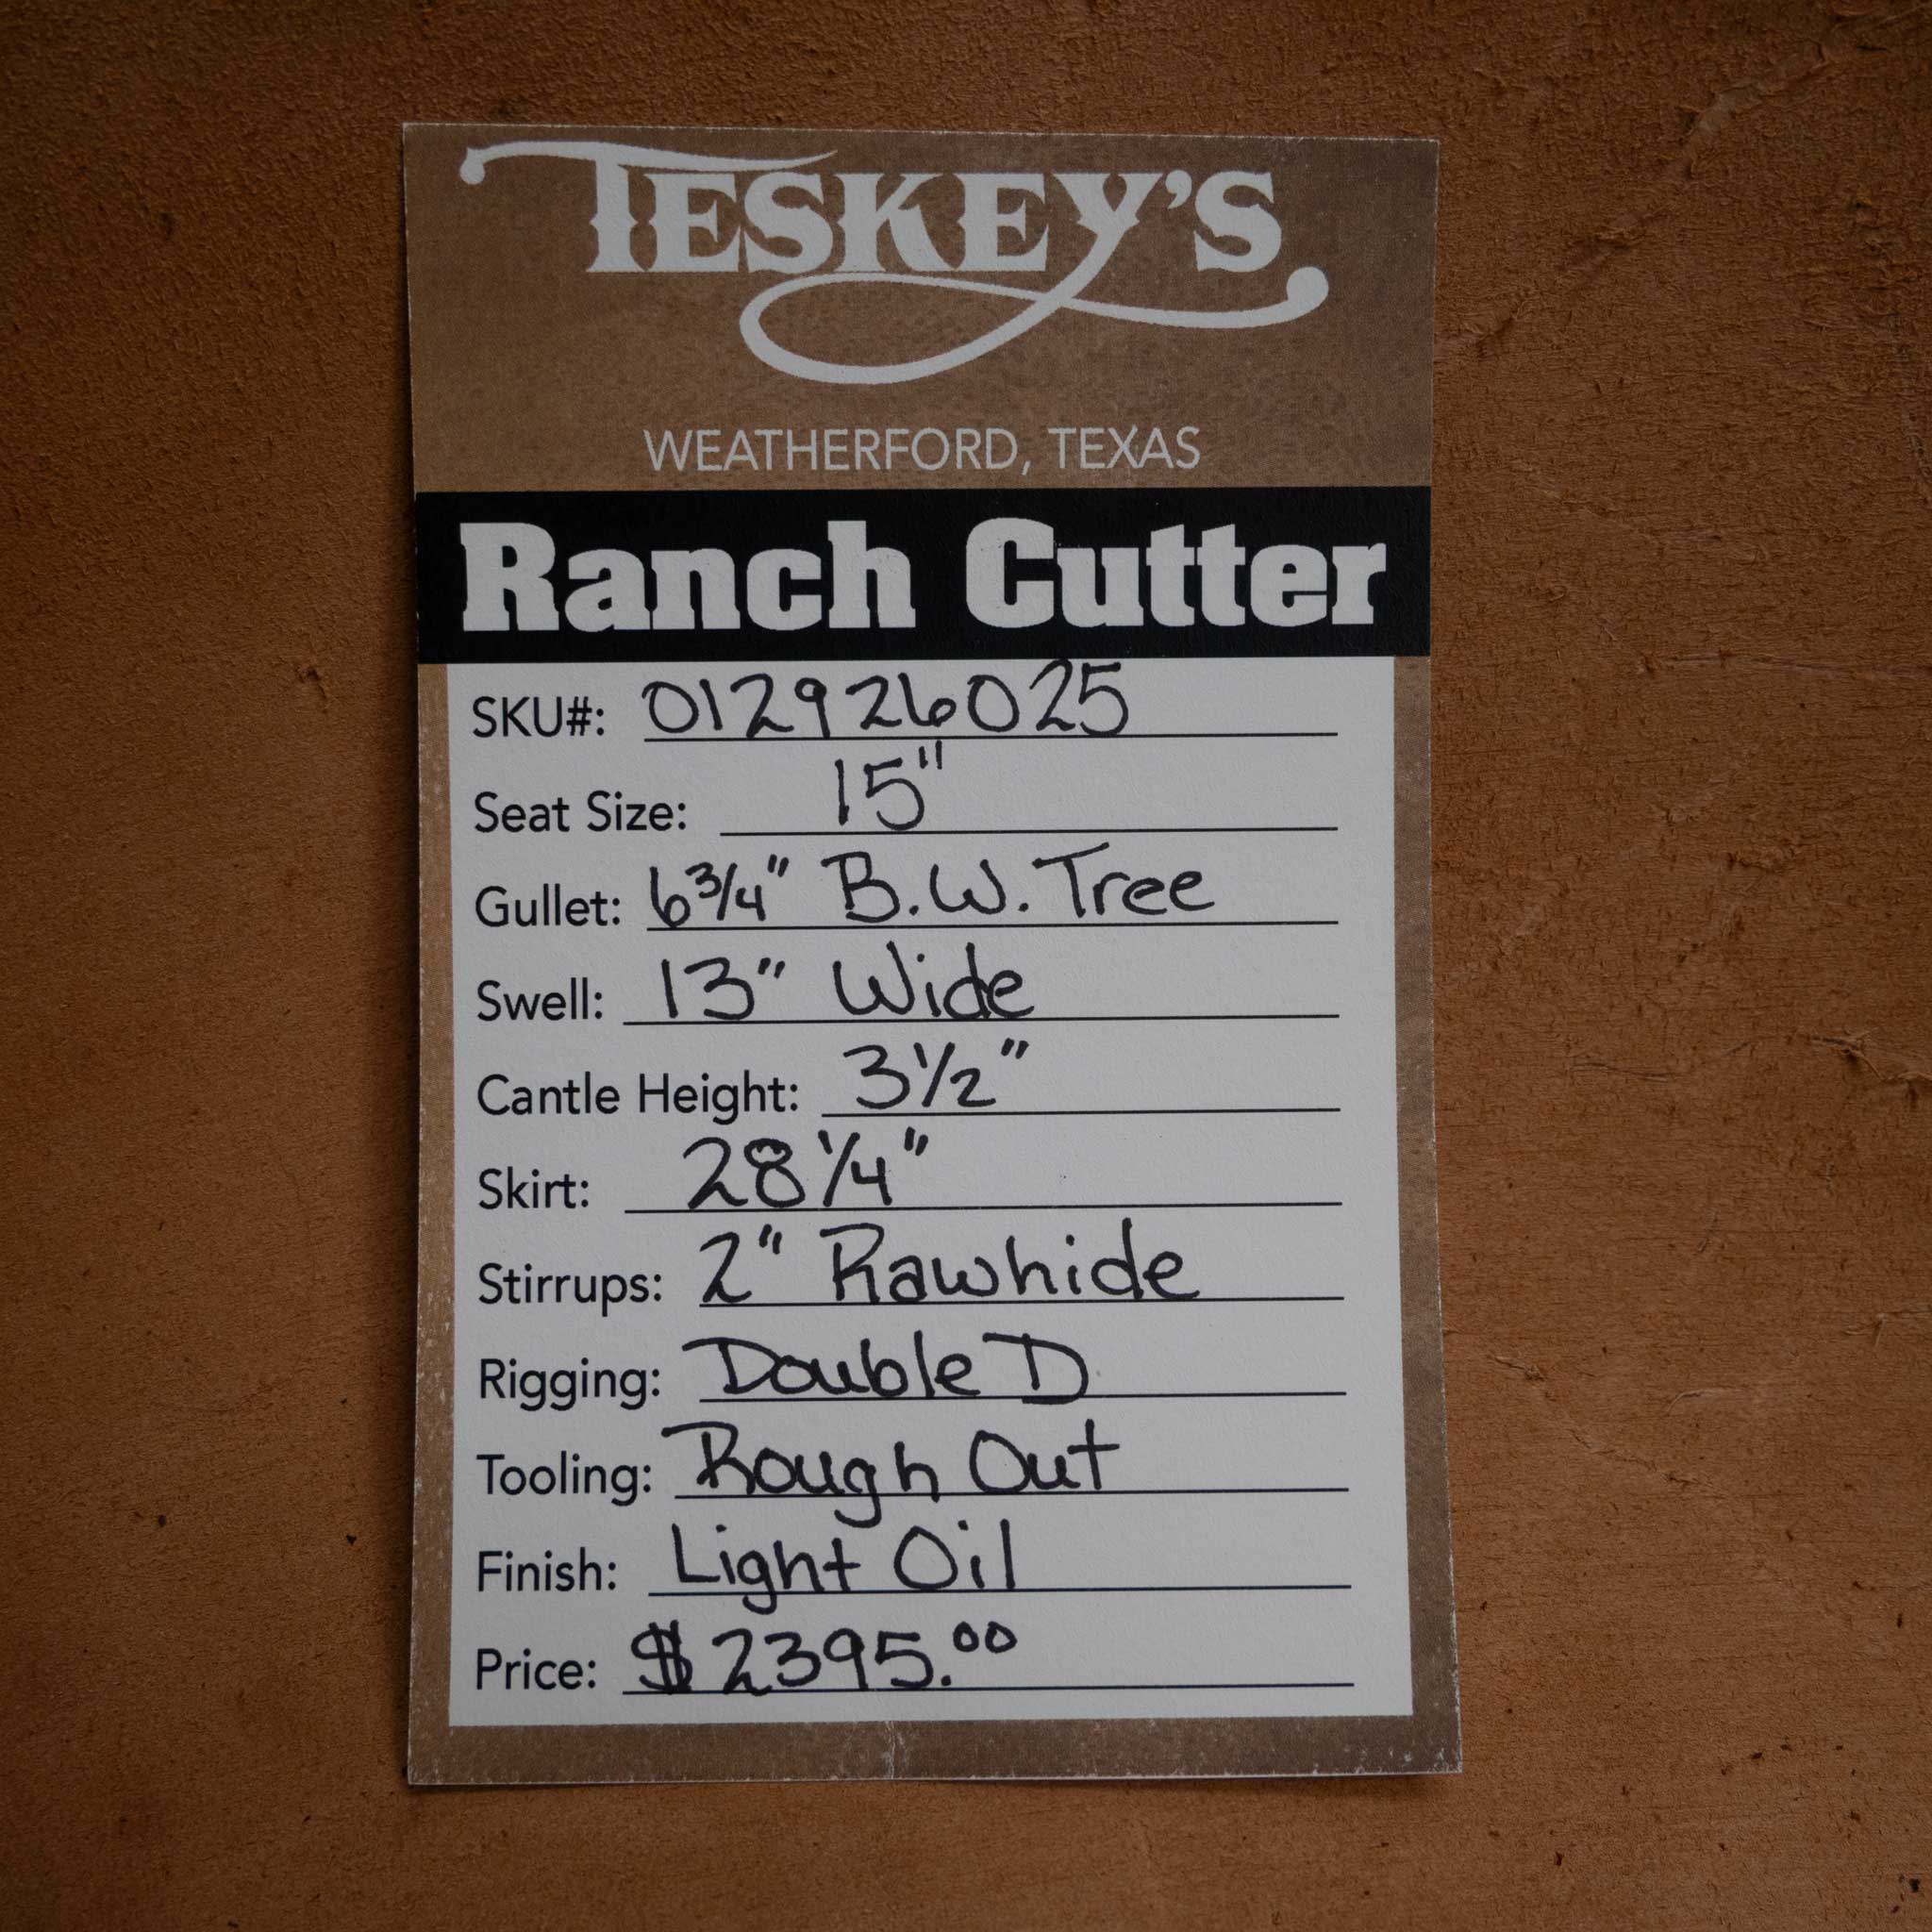 TESKEY'S
WEATHERFORD, TEXAS
Ranch Cutter
SKU#: 012926025
Seat Size: 15"
Gullet: 6 3/4" B.W. Tree
Swell: 13" Wide
Cantle Height: 3 1/2"
Skirt: 28 1/4"
Stirrups: 2" Rawhide
Rigging: Double D
Tooling: Rough Out
Finish: Light Oil
Price: $2395.00